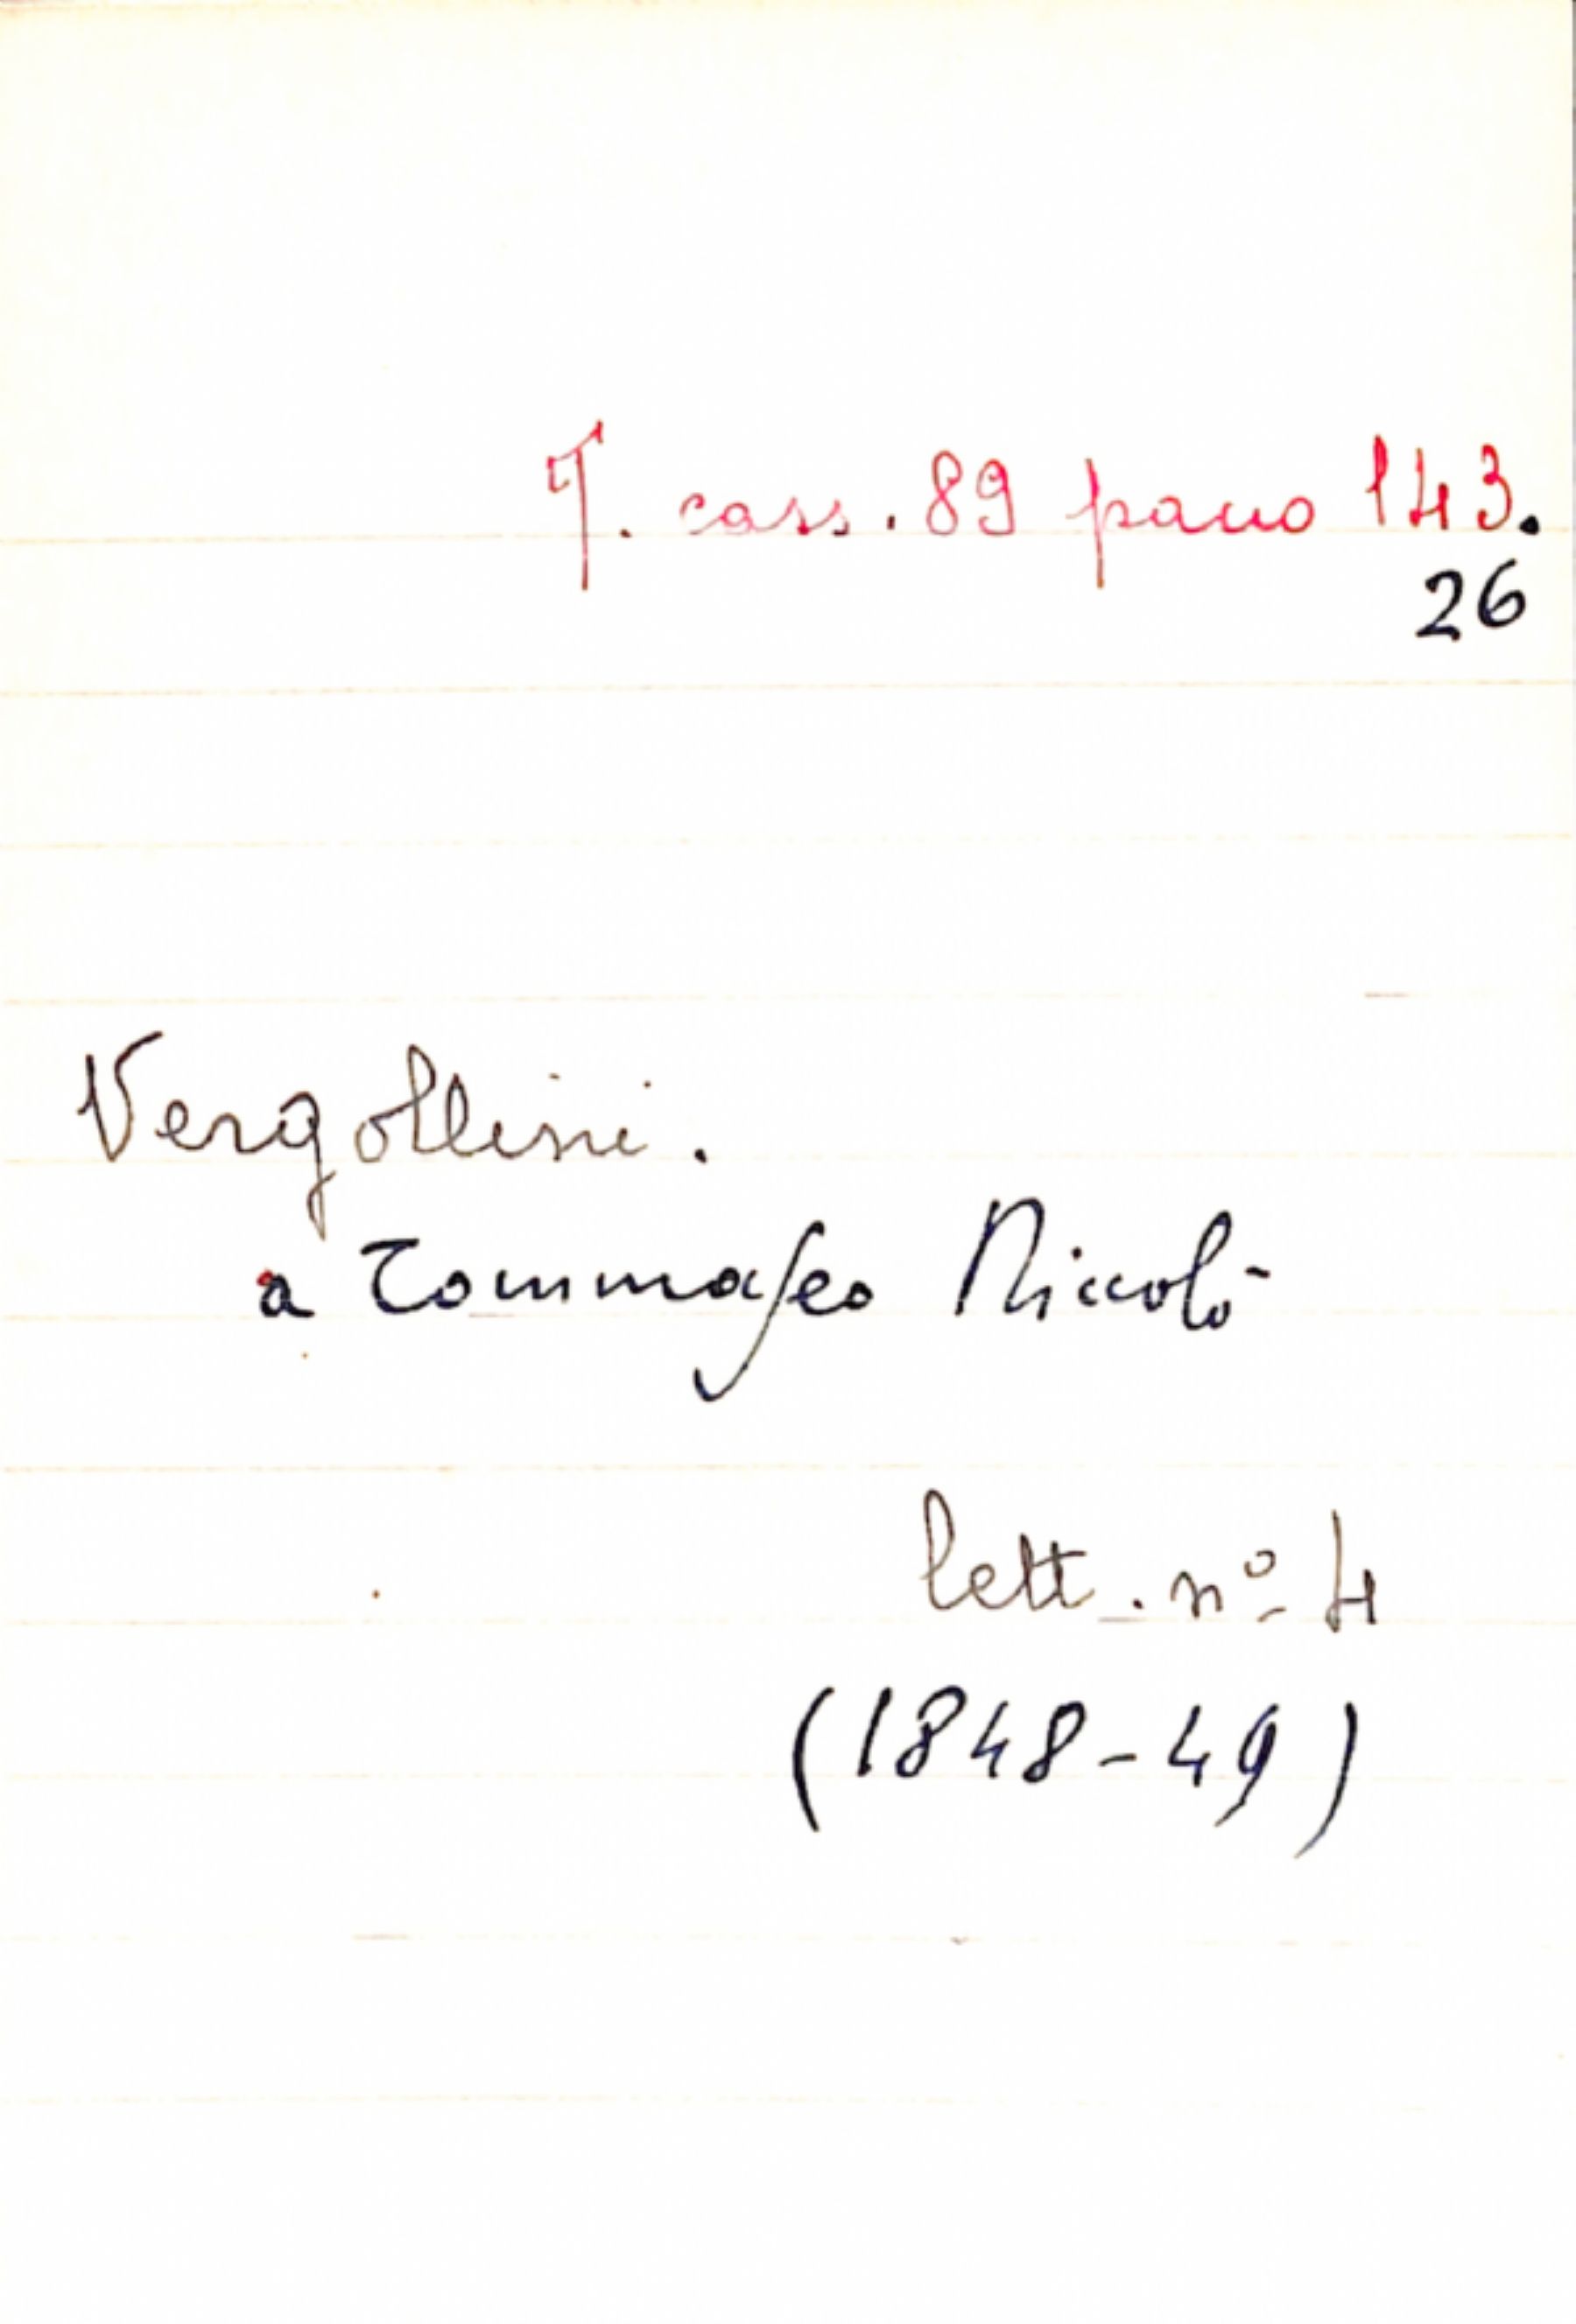 T. cass. 89 pacco 143.
26
Vergottini.
a Tommaseo Niccolò
lett. nº 4
(1848-49)